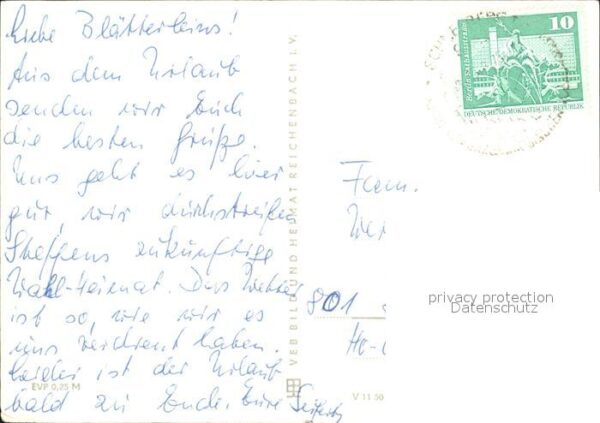 Liebe Blätterleins!
Aus dem Urlaub
senden wir Euch
die besten Grüße.
Uns geht es hier
gut, wir durchstreifen
Steffens zukünftige
Wahl-Heimat. Das Wetter
ist so, wie wir es
uns verdient haben.
Leider ist der Urlaub
bald zu Ende. Eure Seiferts
EVP 0,25 M
VEB BILD UND HEIMAT REICHENBACH I. V.
V 11 50
10
Berlin, Rathausstraße
DEUTSCHE DEMOKRATISCHE REPUBLIK
Fam.
801
privacy protection
Datenschutz